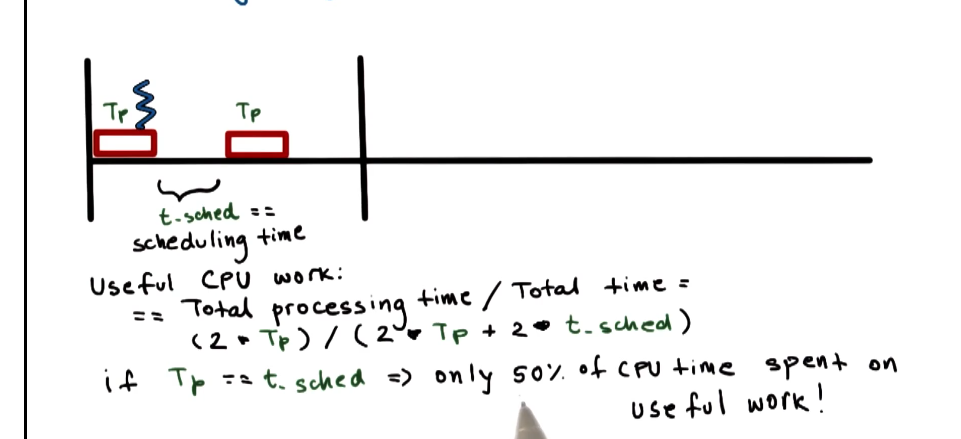 Tp Tp
t-sched ==
scheduling time
Useful CPU work:
== Total processing time / Total time =
(2 * Tp) / (2 * Tp + 2 * t_sched)
if Tp == t. sched => only 50% of CPU time spent on
useful work!